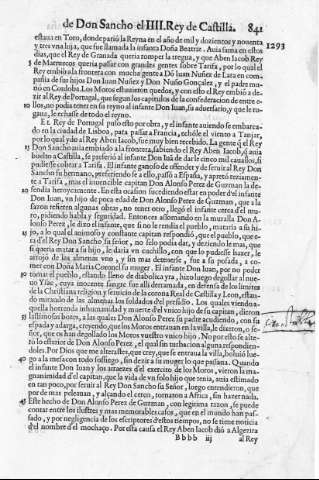 de Don Sancho el IIII. Rey de Castilla. 841
estaua en Toro, donde pariò la Reyna en el año de mil y dozientos y nouenta
y tres vna hija, que fue llamada la infanta Doña Beatriz. Auia fama en estos 1293
dias, que el Rey de Granada queria romper la tregua, y que Aben Iacob Rey
5 de Marruecos queria passar con grandes gentes sobre Tarifa, por lo qual el
Rey embiò a la frontera con mucha gente a Dõ Iuan Nuñez de Lara en com-
pañia de sus hijos Don Iuan Nuñez y Don Nuño Gonçalez, y el padre mu-
riò en Cordoua. Los Moros estuuieron quedos, y con ello el Rey embiò a de-
zir al Rey de Portugal, que segun los capitulos de la confederacion de entre e-
10 llos, no podia tener en su reyno al infante Don Iuan, su aduersario, y que le ro-
gaua, le echasse de todo el reyno.
El Rey de Portugal puso esto por obra, y el infante auiendo se embarca-
do en la ciudad de Lisboa, para passar a Francia, echòle el viento a Tanjar,
por lo qual yda al Rey Aben Iacob, fue muy bien recebido. La gente q̃ el Rey
15 Don Sancho auia embiado a la frontera, sabiendo el Rey Aben Iacob, q̃ auia
buelto a Castilla, se prefirio al infante Don Iuã de darle cinco mil cauallos, si
pudiesse cobrar a Tarifa. El infante ganoso de offender y de seruir al Rey Don
Sancho su hermano, prefiriendo se a ello, passò a España, y apretò reziamen-
te a Tarifa, mas el inuencible capitan Don Alonso Perez de Guzman la de-
20 fendia heroycamente. En esta ocasion sucediendo estar en poder d'el infante
Don Iuan, vn hijo de poca edad de Don Alonso Perez de Guzman, que a la
sazon refieren algunas obras, no tener otro, llegò el infante cerca d'el mu-
ro, pidiendo habla y seguridad. Entonces assomando en la muralla Don A-
lonso Perez, le dixo el infante, que si no le rendia el pueblo, mataria a su hi-
25 jo, a lo qual el animoso y constante capitan respondio, que el pueblo, que e-
ra d'el Rey Don Sancho su señor, no selo podia dar, y deziendo le mas, que
si queria matar a su hijo, le daria vn cuchillo, con que lo pudiesse hazer, le
arrojò de las almenas vno, y sin mas demorarse, fue a su posada, a co-
mer con Doña Maria Coronel su muger. El infante Don Iuan, por no poder
30 tomar el pueblo, estando lleno de diabolica yra, hizo luego degollar al nue-
uo Ysac, cuya inocente sangre fue alli derramada, en defensa de los limites
de la Christiana religion y seruicio de la corona Real de Castilla y Leon, estan-
do mirando de las almenas los soldados del presidio. Los quales viendo a-
quella horrenda inhumanidad y muerte del vnico hijo de su capitan, dieron
35 lastimosos bozes, a las quales Don Alonso Perez su padre acudiendo, con su
espada y adarga, creyendo, que los Moros entrauan en la villa, le dixeron, o se-
ñor, que os han degollado los Moros vuestro vnico hijo. No por esto se alte-
rò lo exterior de Don Alonso Perez, el qual sin turbacion alguna respondien-
doles. Por Dios que me alterastes, que crey, que se entraua la villa, boluiò lue-
40 go a la mesa con todo sossiego, sin dezir a su muger lo que passaua. Quando
el infante Don Iuan y los arraezes d'el exercito de los Moros, vieron la ma-
gnanimidad d'el capitan, que la vida de vn solo hijo que tenia, auia estimado
en tan poco, por seruir al Rey Don Sancho su Señor, luego entendieron, que
por de mas peleauan, y alçando el cerco, tornaron a Africa, sin hazer nada.
45 Este hecho de Don Alonso Perez de Guzman, con legitima razon, se puede
contar entre los illustres y mas memorables casos, que en el mundo han pas-
sado, y por negligencia de los escriptores d'estos tiempos, no se tiene noticia
d'el nombre d'el mochacho. Por esta causa el Rey Aben Iacob diò a Algezira
Bbbb iij al Rey